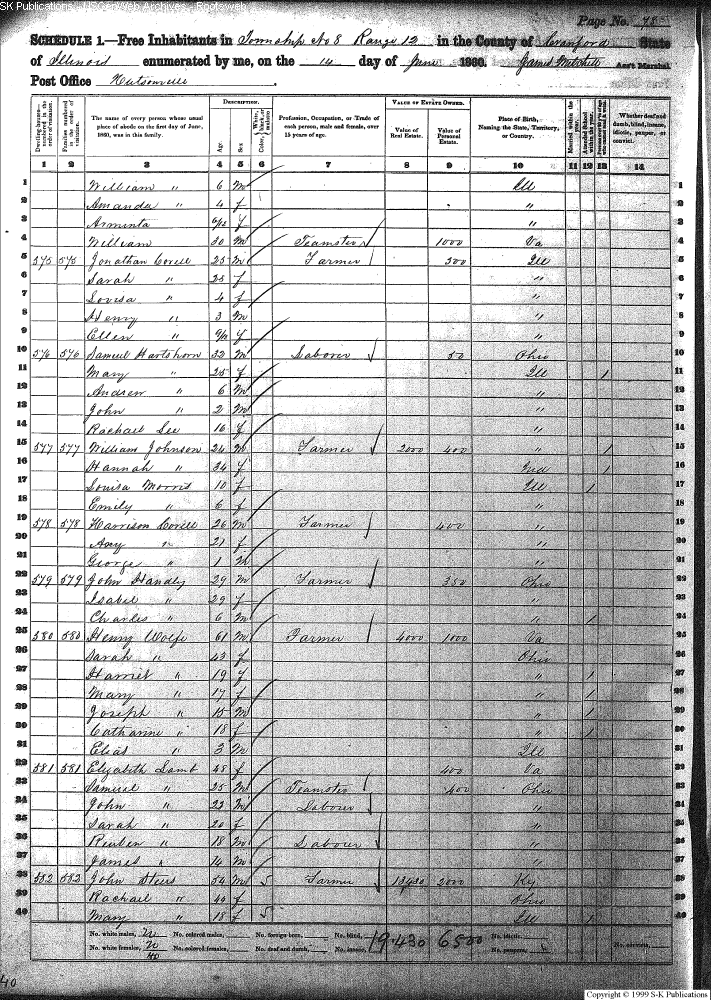 SK Publications - USGenWeb Archives - Rootsweb
Page No. 78
SCHEDULE 1.—Free Inhabitants in Township No 8 Range 12 in the County of Crawford State
of Illinois enumerated by me, on the 14 day of June 1860. James Mitchell Ass't Marshal.
Post Office Hutsonville
Dwelling-houses—numbered in the order of visitation. Families numbered in the order of visitation. The name of every person whose usual place of abode on the first day of June, 1860, was in this family. Description. Age. Sex. Color, White, black, or mulatto. Profession, Occupation, or Trade of each person, male and female, over 15 years of age. Value of Estate Owned. Value of Real Estate. Value of Personal Estate. Place of Birth, Naming the State, Territory, or Country. Married within the year. Attended School within the year. Whether deaf and dumb, blind, insane, idiotic, pauper, or convict.
1 2 3 4 5 6 7 8 9 10 11 12 13 14
1 William " 6 m Ill 1
2 Amanda " 4 f " 2
3 Arminta 6/12 f " 3
4 William 30 m Teamster 1000 Va 4
5 575 575 Jonathan Covell 25 m Farmer 300 Ill 5
6 Sarah " 25 f " 6
7 Lovisa " 4 f " 7
8 Henry " 3 m " 8
9 Ellen " 9/12 f " 9
10 576 576 Samuel Hartshorn 32 m Laborer 50 Ohio 10
11 Mary " 25 f Ill 1 11
12 Andrew " 6 m " 12
13 John " 2 m " 13
14 Rachael Lee 16 f " 14
15 577 577 William Johnson 24 m Farmer 2000 400 " 1 15
16 Hannah " 34 f Ind 1 16
17 Louisa Morris 10 f Ill 1 17
18 Emily " 6 f " 18
19 578 578 Harrison Covell 26 m Farmer 400 " 19
20 Amy " 21 f " 20
21 George " 1 m " 21
22 579 579 John Handly 29 m Farmer 350 Ohio 22
23 Isabel " 29 f " 23
24 Charles " 6 m " 1 24
25 580 580 Henry Wolfe 61 m Farmer 4000 1000 Va 25
26 Sarah " 43 f Ohio 26
27 Harriet " 19 f " 1 27
28 Mary " 17 f " 1 28
29 Joseph " 15 m " 1 29
30 Catharine " 18 f " 1 30
31 Elias " 3 m Ill 31
32 581 581 Elizabeth Lamb 48 f 400 Va 32
33 Samuel " 25 m Teamster 400 Ohio 33
34 John " 22 m Labour " 34
35 Sarah " 20 f " 35
36 Reuben " 18 m Labour " 36
37 James " 14 m " 37
38 582 582 John Steers 54 m Farmer 13430 2000 Ky 38
39 Rachael " 40 f Ohio 39
40 Mary " 18 f Ill 1 40
No. white males, No. colored males, No. foreign born, No. blind, 19.430 6500 No. idiotic,
No. white females, 20 No. colored females, No. deaf and dumb, No. insane, No. paupers, No. convicts,
40
40
Copyright © 1999 S-K Publications